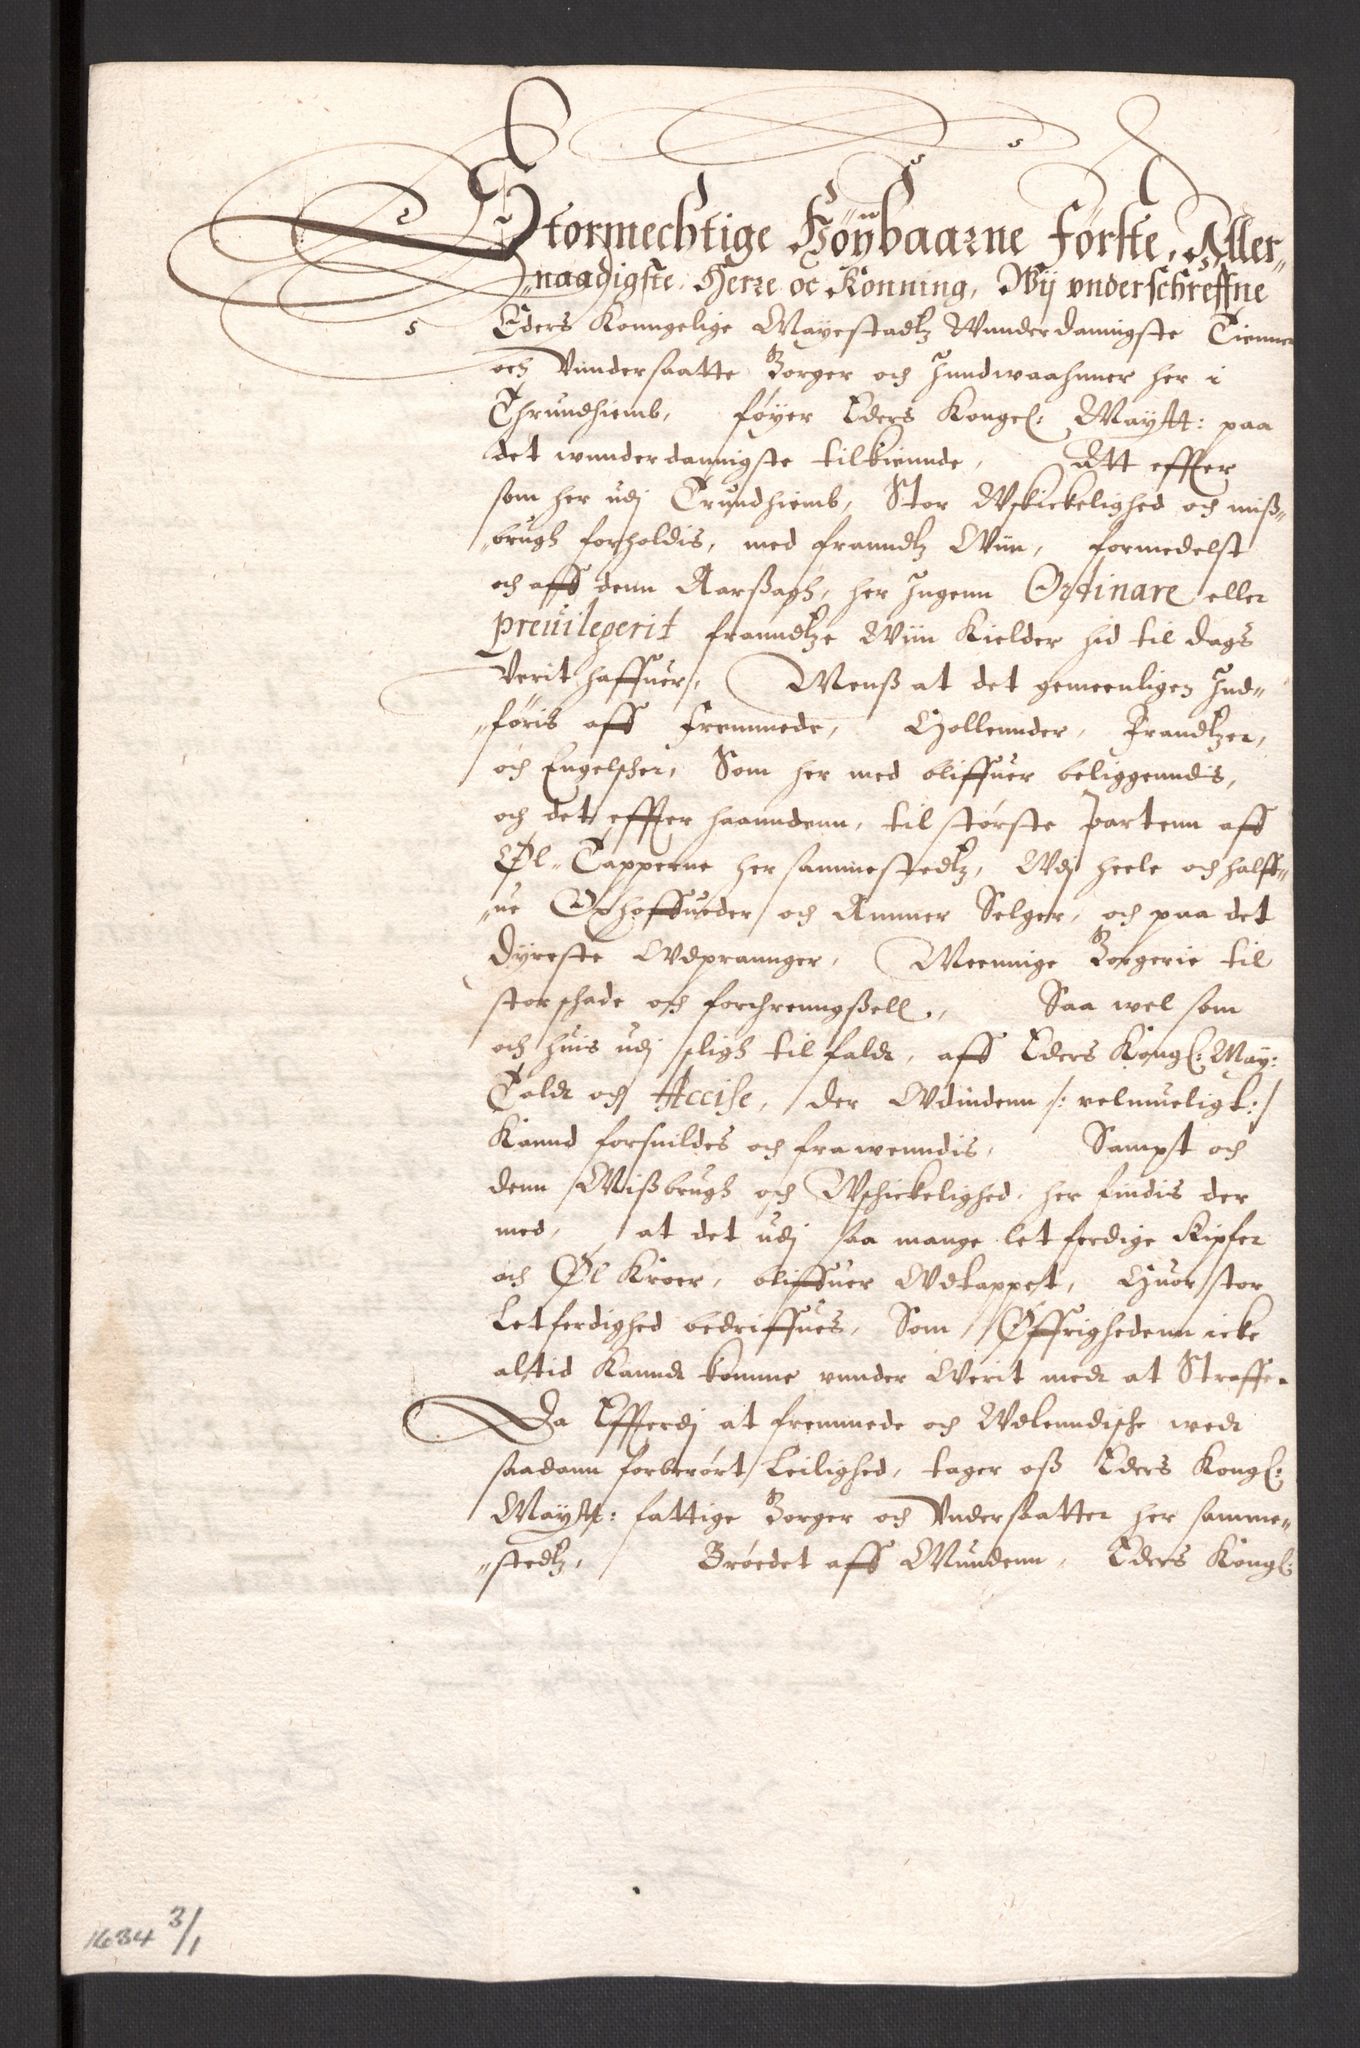 Stormechtige Höybaarne Förste, Aller„
„naadigste, Herre oc Konning, Wij underschreffne
Eders Konngelige Mayestadtz Wunderdannigste Tienner
och Vnndersaatte Borger och Inndwaahnner her i
Thrundhiemb, føyer Eders Kongel: Maytt: paa
det wnnderdannigste tilkiennde, Att effter
som her udj Trundhiemb, Stor Wskickelighed och miß„
„brugh forholdis, med franndtz Wiin, formedelst
och aff denn Aarßagh, her Ingenn Ordinare eller
previlegerit franndtze Wiin Kielder hid til dags
Verit haffuer, Menß at det gemeenligen Ind„
„føris aff fremmede, Hollennder, Frandtzer,
och Engelscher, Som her med bliffuer beliggenndis,
och det effter haanndenn, til største partenn aff
Øl-Tapperne her sammestedtz, Wdj heele och halff„
„ue Oxhoffueder och Ammer Selger, och paa det
dyreste Wdprannger, Meennige Borgerie til
stor schade och forthrenngßell, Saa wel som
och huis udj sligh tilfalde, aff Eders Kongl: May:
Told och Accise, der Wdindenn /: velmueligt :/
Kannd forsuildes och frawenndis, Sampt och
denn Mißbrugh och Wschickelighed, her findis der
med, at det udj saa mange letferdige Kipfer
och Øl Kroer, bliffuer Wdtappet, Huor stor
Letferdighed bedriffues, Som Øffrighedenn icke
altid Kannd komme wnnder Werit med at Straffe.
Da Effterdj at fremmede och Wdlenndische wed
saadann forberørt Leilighed, tager oß Eders Kongl:
Maytt: fattige Borger och Vndersaatter her samme„
„stedtz, Brøedet aff Munden, Eders Kongl:
1634 3/1